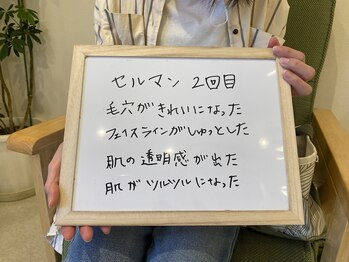 セルマン 2回目
毛穴がきれいになった
フェイスラインがしゅっとした
肌の透明感が出た
肌がツルツルになった